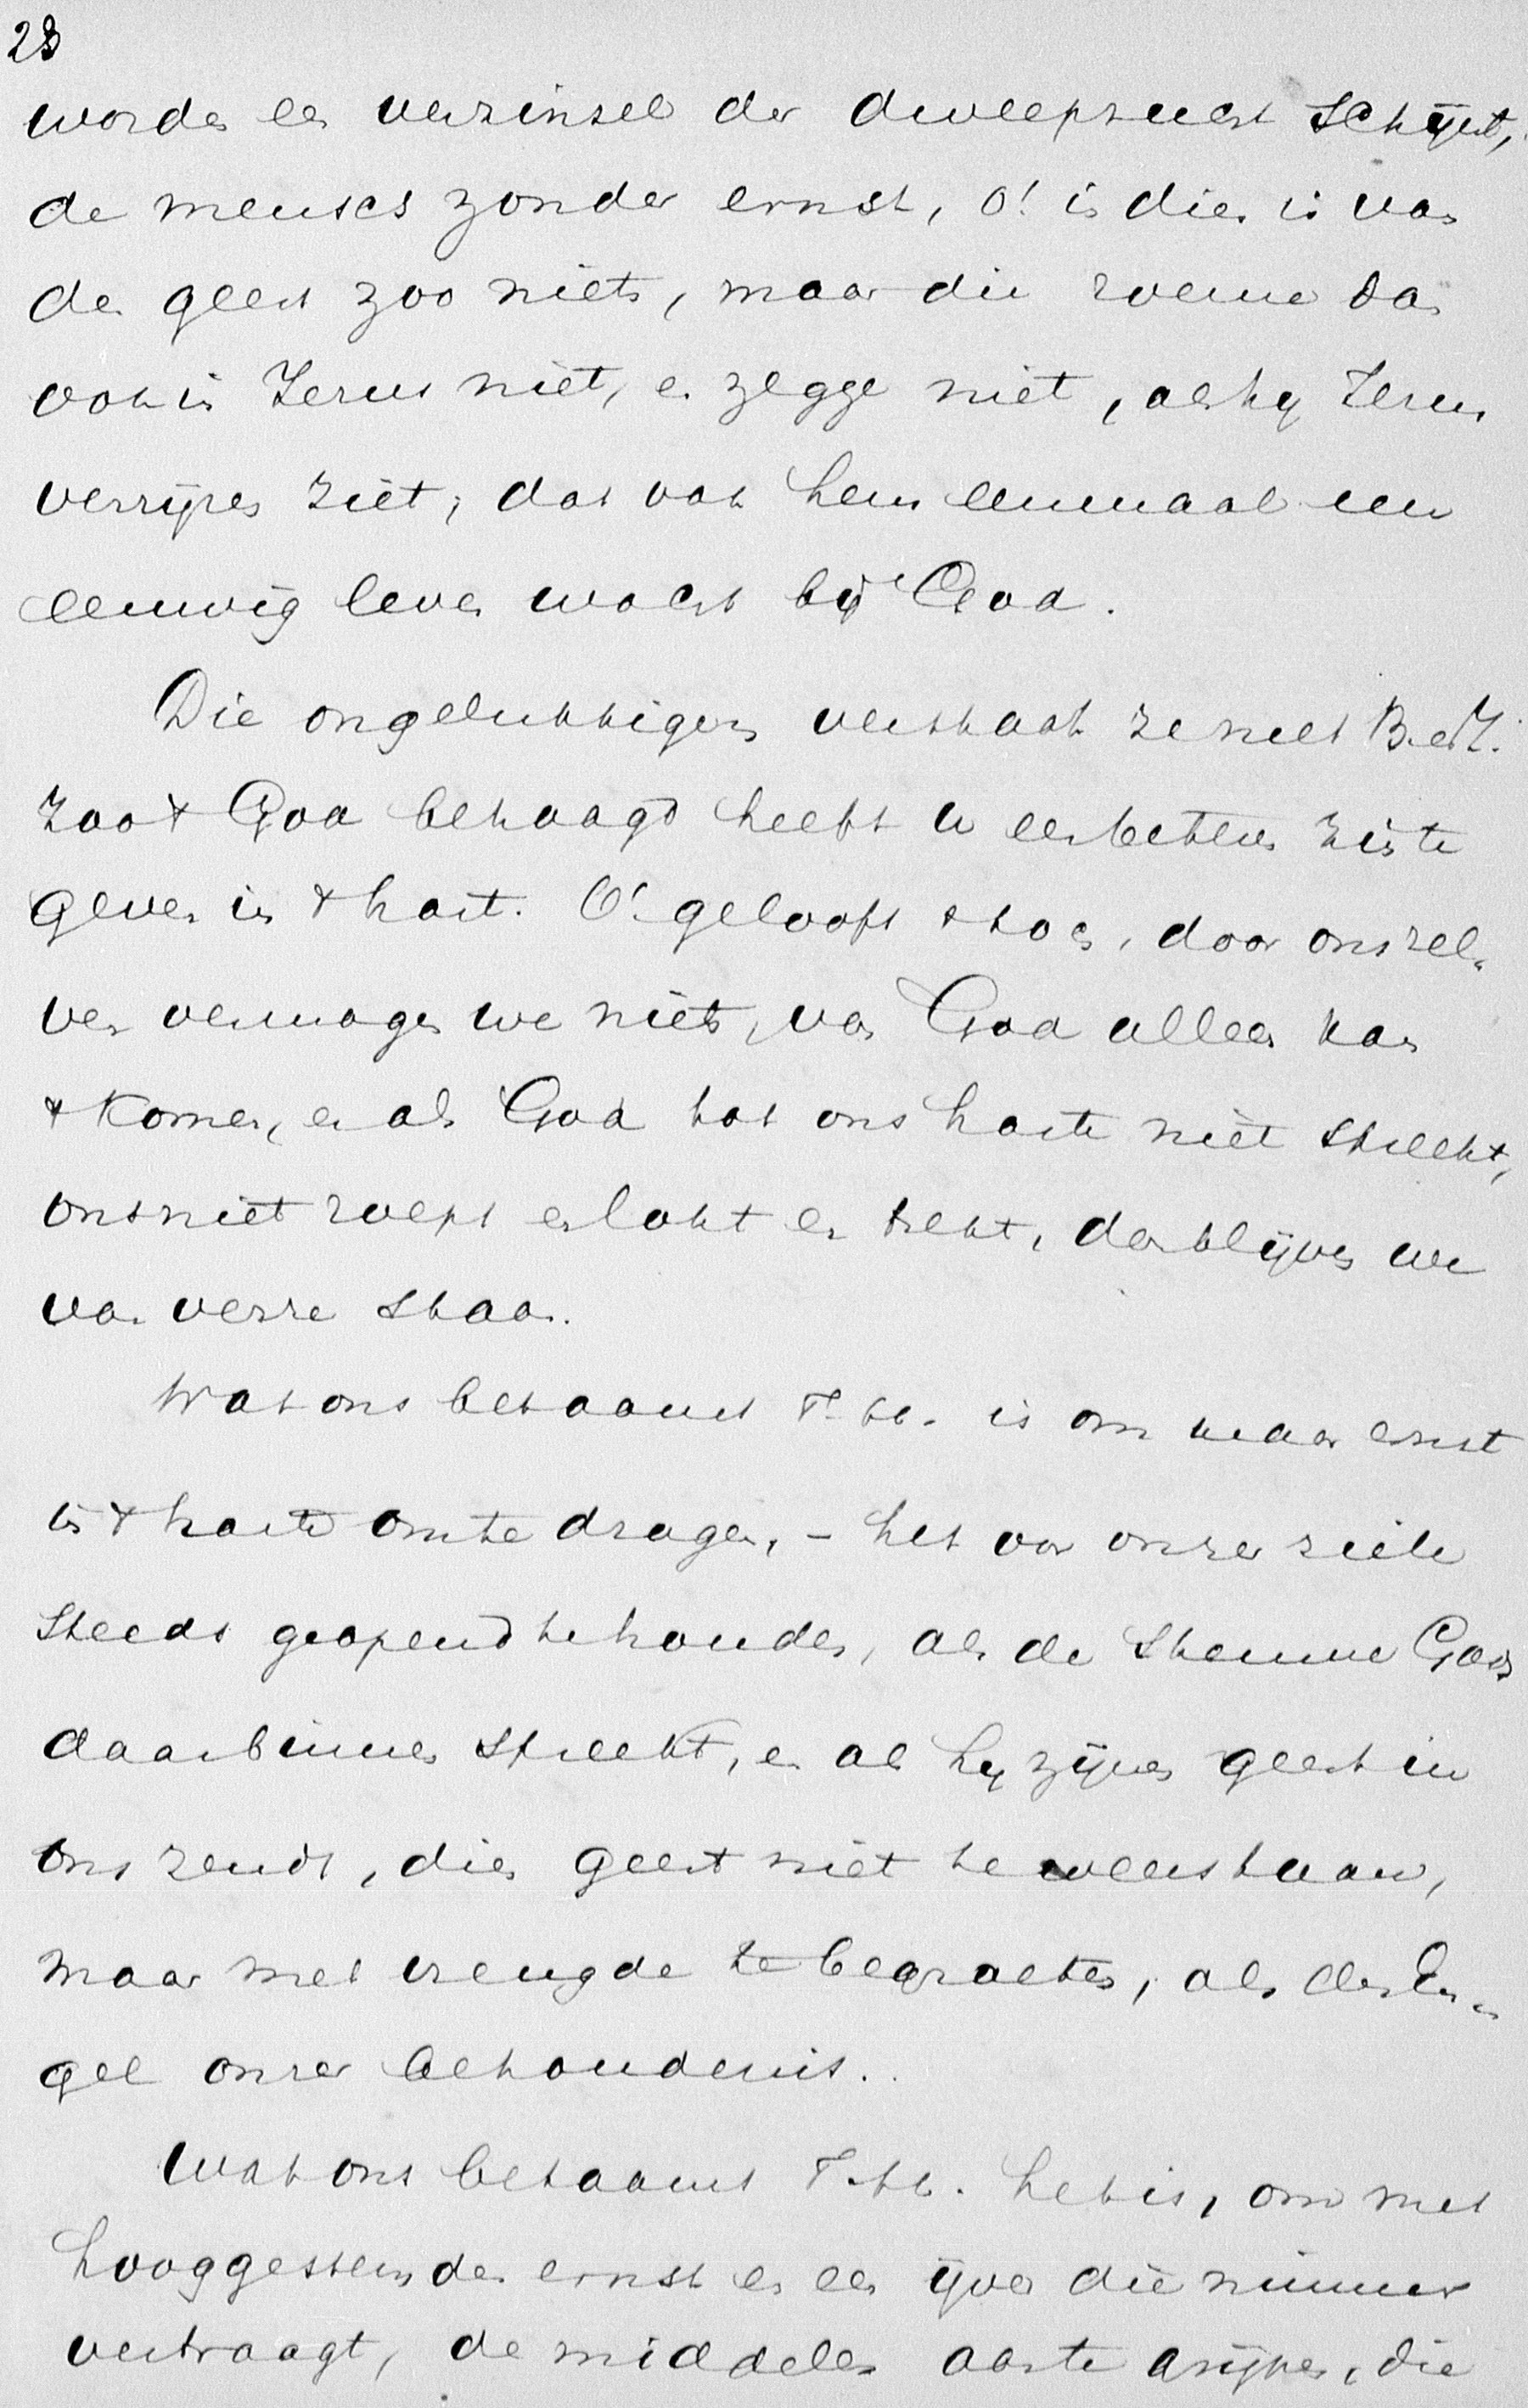 28
worden een verzinsel der dweepzucht schijnt,
de mensch zonder ernst, o! in dien is van
den geest zoo niets, maar die roeme dan
ook in Jezus niet, en zegge niet, als hij Jezus
verrijzen ziet, dat ook hem eenmaal een
eeuwig leven wacht bij God.
Die ongelukkigen verstaat ze niet B. en Z.
zoo 't God behaagd heeft u een beteren zin te
geven in 't hart. O! gelooft 't toch, door ons zel-
ven vermogen we niets, van God alleen kan
't komen, en als God tot ons harte niet spreekt,
ons niet roept en lokt en trekt, dan blijven we
van verre staan.
Wat ons betaamt is om waar ernst
in 't harte om te dragen, - het oor onzer ziele
steeds geopend te houden, als de stemme Gods
daarbinnen spreekt, en als hij zijnen geest in
ons zendt, dien geest niet te weerstaan,
maar met vreugde te begroeten, als den En-
gel onzer behoudenis.
Wat ons betaamt het is, om met
hooggestemden ernst en een ijver die nimmer
vertraagt, de middelen aan te grijpen, die